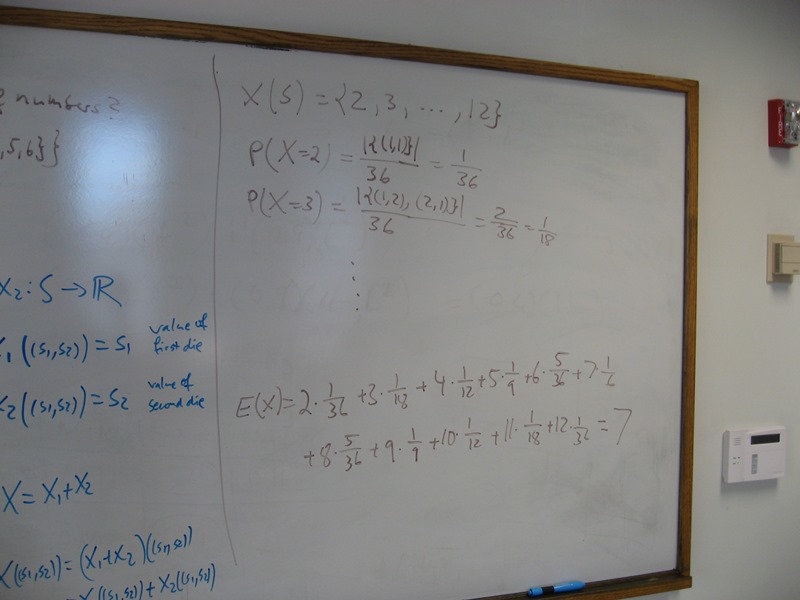 numbers?
,5,6}}
X₂: S → ℝ
X₁((s₁,s₂)) = s₁ value of first die
X₂((s₁,s₂)) = s₂ value of second die
X = X₁ + X₂
X((s₁,s₂)) = (X₁+X₂)((s₁,s₂))
= X₁((s₁,s₂)) + X₂((s₁,s₂))
X(S) = {2, 3, ..., 12}
P(X=2) = |{(1,1)}|/36 = 1/36
P(X=3) = |{(1,2), (2,1)}|/36 = 2/36 = 1/18
⋮
E(X) = 2·1/36 + 3·1/18 + 4·1/12 + 5·1/9 + 6·5/36 + 7·1/6
+ 8·5/36 + 9·1/9 + 10·1/12 + 11·1/18 + 12·1/36 = 7
FIRE